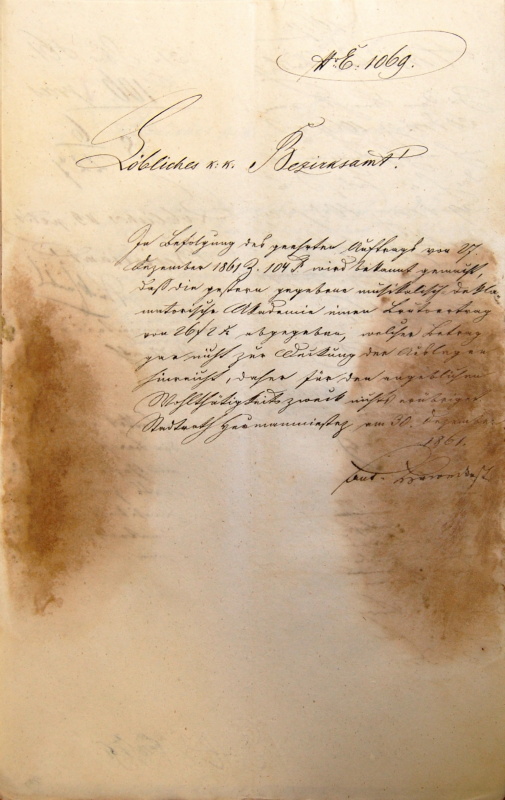 N. E. 1069.
Löbliches k. k. Bezirksamt!
In Befolgung des geehrten Auftrags von 27
Dezember 1861 Z. 104 wird bekannt gemacht,
daß die gestern gegebene musikalisch dekla-
matorische Akademie einen Bruttoertrag
von 26 f 2 x abgegeben, welcher Betrag
gar nicht zur Deckung der Auslagen
hinreicht, daher für den angeblichen
Wohlthätigkeitszweck nichts erübriget
Stadtrath Hermanmiestez am 30. Dezember
1861.